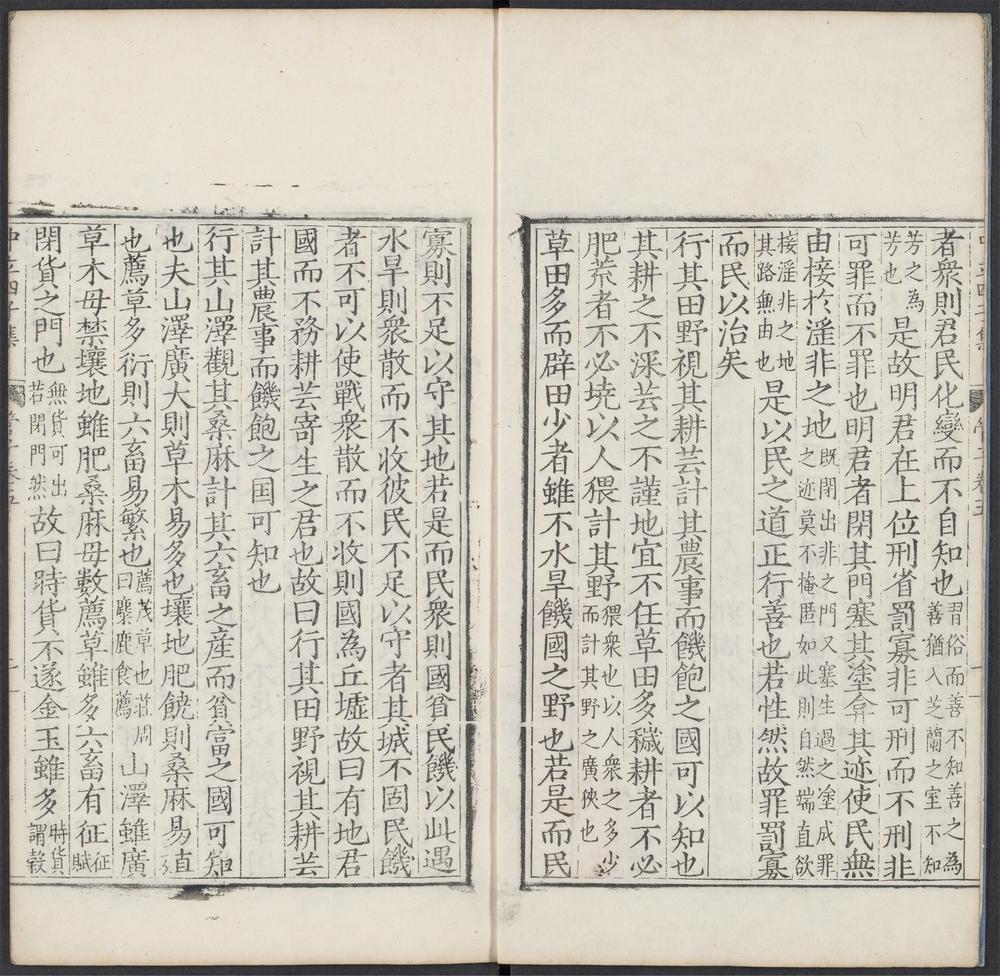 者衆則君民化變而不自知也謂俗而善不知善之為善猶入芝蘭之室不知
芳之為芳也是故明君在上位刑省罰寡非可刑而不刑非
可罪而不罪也明君者閉其門塞其塗弇其迹使民無
由接於淫非之地既閉出非之門又塞生過之塗成罪之迹莫不掩匿如此則自然端直欲
接淫非之地其路無由也是以民之道正行善也若性然故罪罰寡
而民以治矣
行其田野視其耕芸計其農事而饑飽之國可以知也
其耕之不深芸之不謹地宜不任草田多穢耕者不必
肥荒者不必墝以人猥計其野猥衆也以人衆之多少而計其野之廣狹也
草田多而辟田少者雖不水旱饑國之野也若是而民
寡則不足以守其地若是而民衆則國貧民饑以此遇
水旱則衆散而不收彼民不足以守者其城不固民饑
者不可以使戰衆散而不收則國為丘墟故曰有地君
國而不務耕芸寄生之君也故曰行其田野視其耕芸
計其農事而饑飽之国可知也
行其山澤觀其桑麻計其六畜之産而貧富之國可知
也夫山澤廣大則草木易多也壤地肥饒則桑麻易直
也薦草多衍則六畜易繁也薦茂草也莊周曰麋鹿食薦山澤雖廣
草木毋禁壤地雖肥桑麻毋數薦草雖多六畜有征征賦
閉貨之門也無貨可出若閉門然故曰時貨不遂金玉雖多時貨謂穀